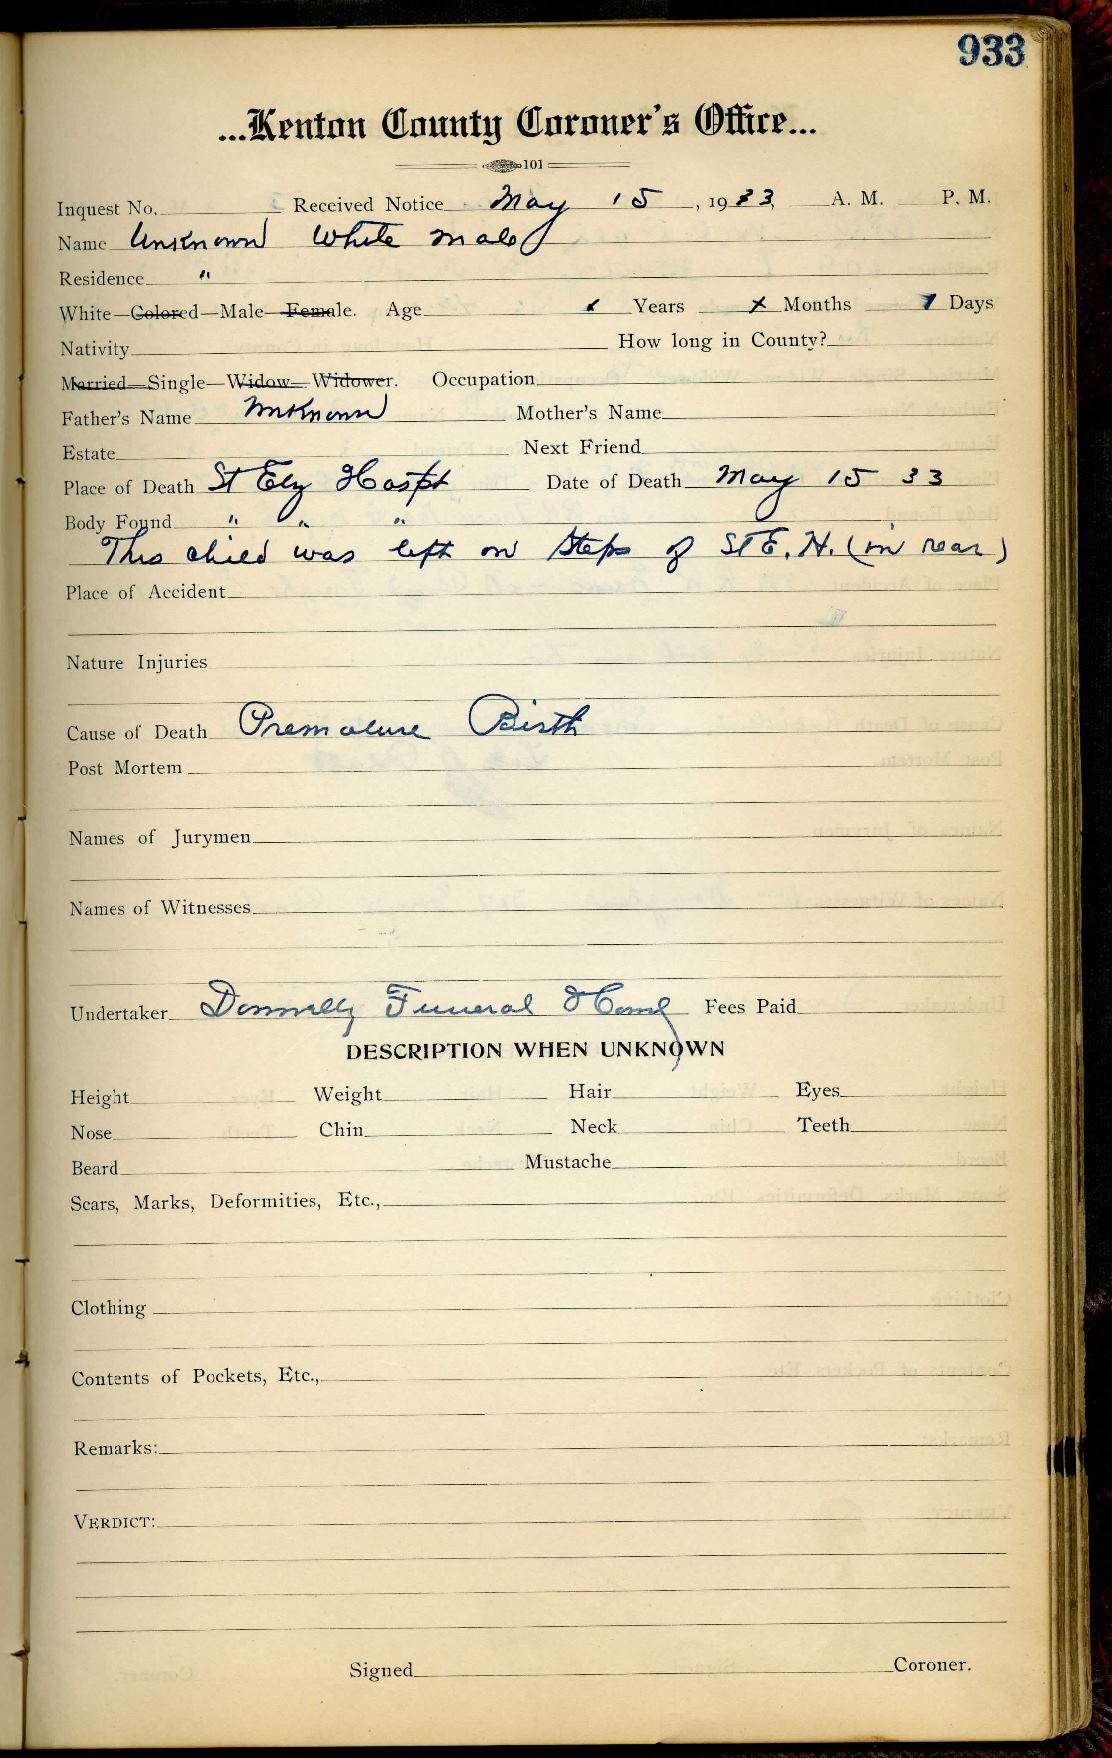 933
...Kenton County Coroner's Office...
101
Inquest No. Received Notice May 15, 1933, A. M. P. M.
Name Unknown White male
Residence "
White—Colored—Male—Female. Age x Years x Months 1 Days
Nativity How long in County?
Married—Single—Widow—Widower. Occupation
Father's Name Unknown Mother's Name
Estate Next Friend
Place of Death St Elz Hospt Date of Death May 15 33
Body Found " " "
This child was left on steps of St E. H. (in rear)
Place of Accident
Nature Injuries
Cause of Death Premature Birth
Post Mortem
Names of Jurymen
Names of Witnesses
Undertaker Donnelly Funeral Home Fees Paid
DESCRIPTION WHEN UNKNOWN
Height Weight Hair Eyes
Nose Chin Neck Teeth
Beard Mustache
Scars, Marks, Deformities, Etc.,
Clothing
Contents of Pockets, Etc.,
Remarks:
VERDICT:
Signed Coroner.